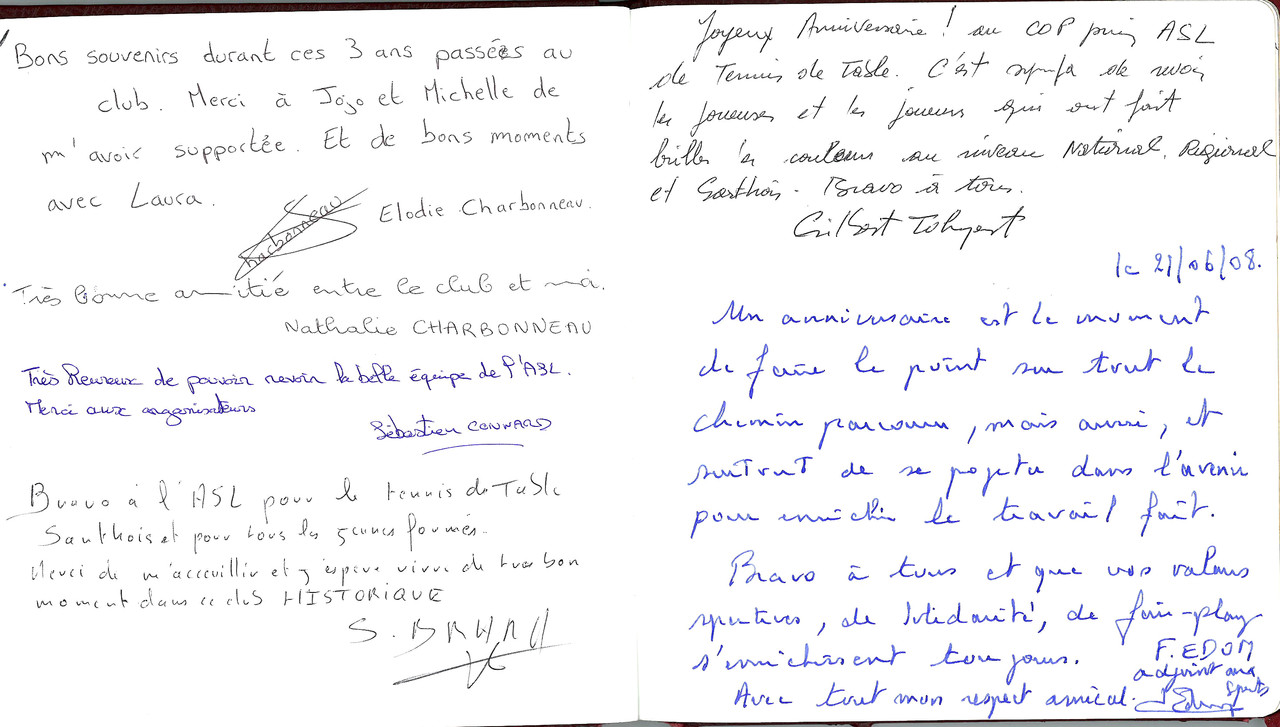 Bons souvenirs durant ces 3 ans passées au
club. Merci à Jojo et Michelle de
m'avoir supportée. Et de bons moments
avec Laura.
Elodie Charbonneau.
Charbonneau
Très bonne amitié entre le club et moi.
Nathalie CHARBONNEAU
Très heureux de pouvoir revoir la belle équipe de l'ASL.
Merci aux organisateurs
Sébastien
Bravo à l'ASL pour le tennis de Table
Sarthois et pour tous les jeunes formés.
Merci de m'acceuillir et j'espère vivre de tres bon
moment dans ce club HISTORIQUE
S.
Joyeux Anniversaire ! au COP puis ASL
de Tennis de Table. C'est sympa de revoir
les joueuses et les joueurs qui ont fait
briller les couleurs au niveau National, Régional
et Sarthois. Bravo à tous.
Gilbert
le 21/06/08.
Un anniversaire est le moment
de faire le point sur tout le
chemin parcouru, mais aussi, et
surtout de se projeter dans l'avenir
pour enrichir le travail fait.
Bravo à tous et que vos valeurs
sportives, de solidarité, de fair-play
s'enrichissent toujours.
Avec tout mon respect amical.
F. EDOM
adjoint aux
sports